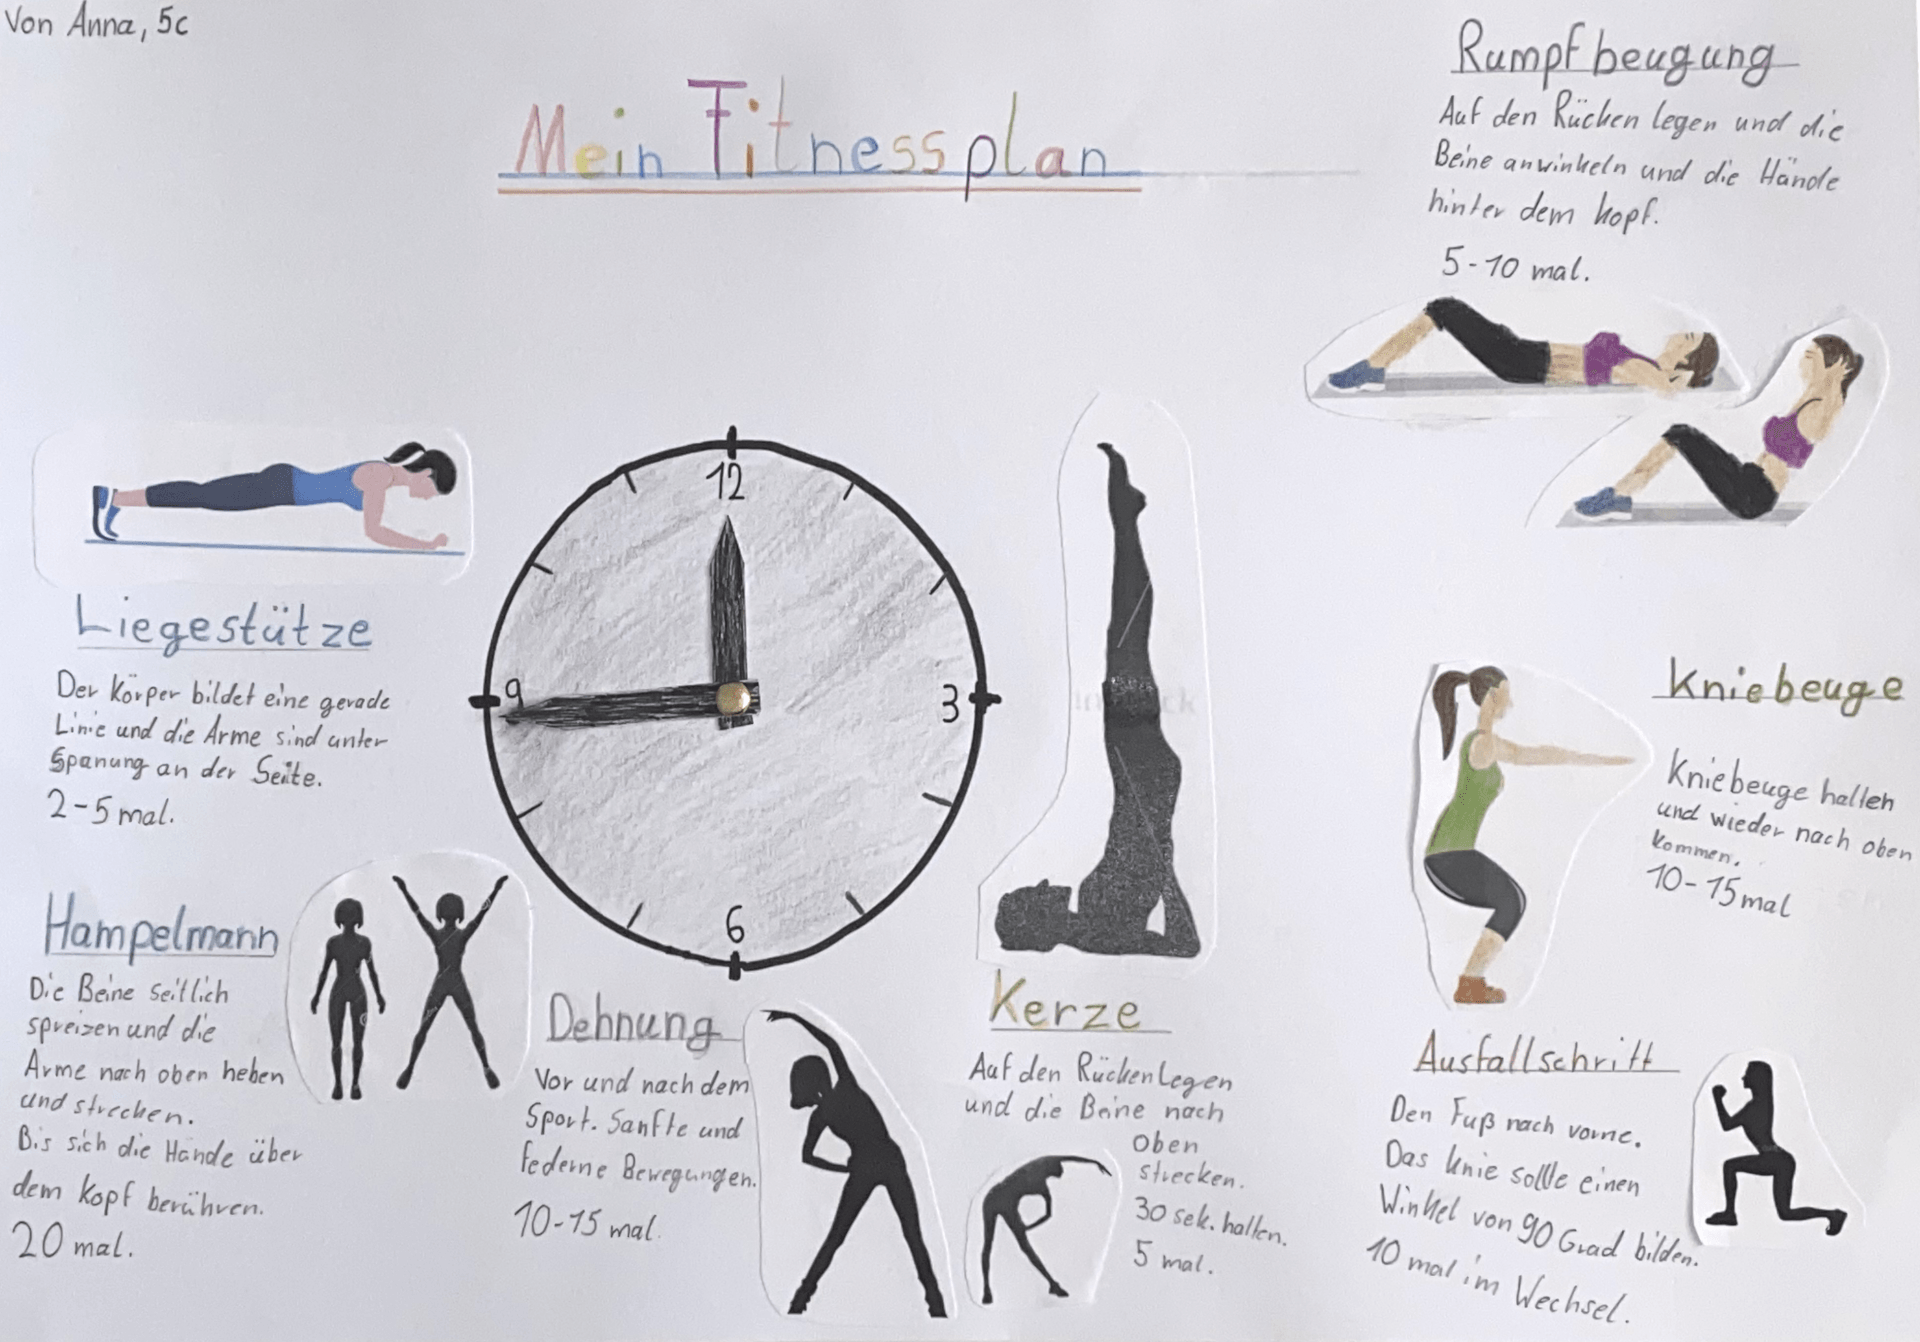 Von Anna, 5c
Mein Fitnessplan
Rumpfbeugung
Auf den Rücken legen und die
Beine anwinkeln und die Hände
hinter dem kopf.
5-10 mal.
Liegestütze
Der Körper bildet eine gerade
Linie und die Arme sind unter
Spanung an der Seite.
2-5 mal.
12
9
3
6
Kniebeuge
Kniebeuge halten
und wieder nach oben
kommen.
10-15 mal
Hampelmann
Die Beine seitlich
spreizen und die
Arme nach oben heben
und strecken.
Bis sich die Hände über
dem Kopf berühren.
20 mal.
Dehnung
Vor und nach dem
Sport. Sanfte und
federne Bewegungen.
10-15 mal.
Kerze
Auf den Rücken legen
und die Beine nach
oben
strecken.
30 sek. halten.
5 mal.
Ausfallschritt
Den Fuß nach vorne.
Das Knie sollte einen
Winkel von 90 Grad bilden.
10 mal im Wechsel.